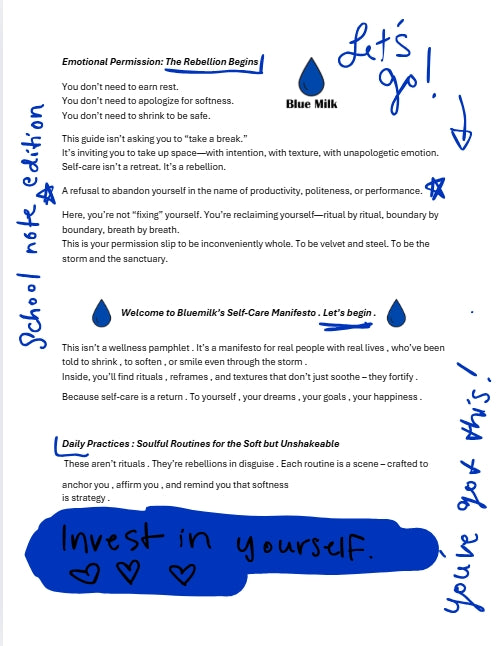 Let's
go!
Emotional Permission: The Rebellion Begins
Blue Milk
You don't need to earn rest.
You don't need to apologize for softness.
You don't need to shrink to be safe.
This guide isn't asking you to "take a break."
It's inviting you to take up space—with intention, with texture, with unapologetic emotion.
Self-care isn't a retreat. It's a rebellion.
A refusal to abandon yourself in the name of productivity, politeness, or performance.
Here, you're not "fixing" yourself. You're reclaiming yourself—ritual by ritual, boundary by
boundary, breath by breath.
This is your permission slip to be inconveniently whole. To be velvet and steel. To be the
storm and the sanctuary.
School note edition
Welcome to Bluemilk's Self-Care Manifesto . Let's begin .
This isn't a wellness pamphlet . It's a manifesto for real people with real lives , who've been
told to shrink , to soften , or smile even through the storm .
Inside, you'll find rituals , reframes , and textures that don't just soothe – they fortify .
Because self-care is a return . To yourself , your dreams , your goals , your happiness .
you've got this!
Daily Practices : Soulful Routines for the Soft but Unshakeable
These aren't rituals . They're rebellions in disguise . Each routine is a scene – crafted to
anchor you , affirm you , and remind you that softness
is strategy .
Invest in yourself.